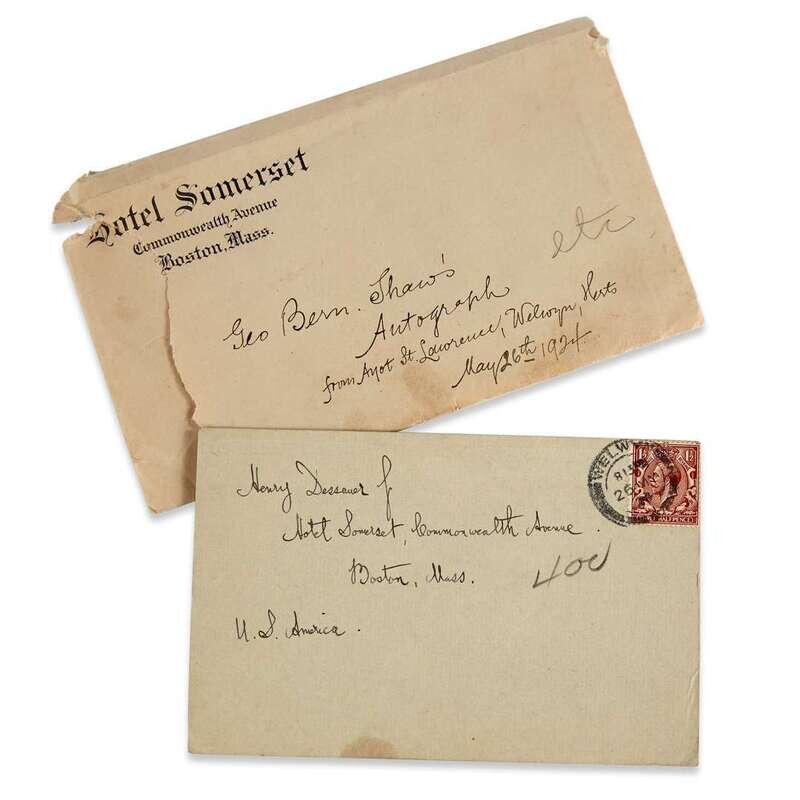 Hotel Somerset
Commonwealth Avenue
Boston, Mass.
etc
Geo Bern. Shaw's
Autograph
from Ayot St. Lawrence, Welwyn, Herts
May 26th 1924.
WELW
26
1½ 1½
HALF PENCE
Henry Dessauer
Hotel Somerset, Commonwealth Avenue.
Boston, Mass.
400
U.S. America.